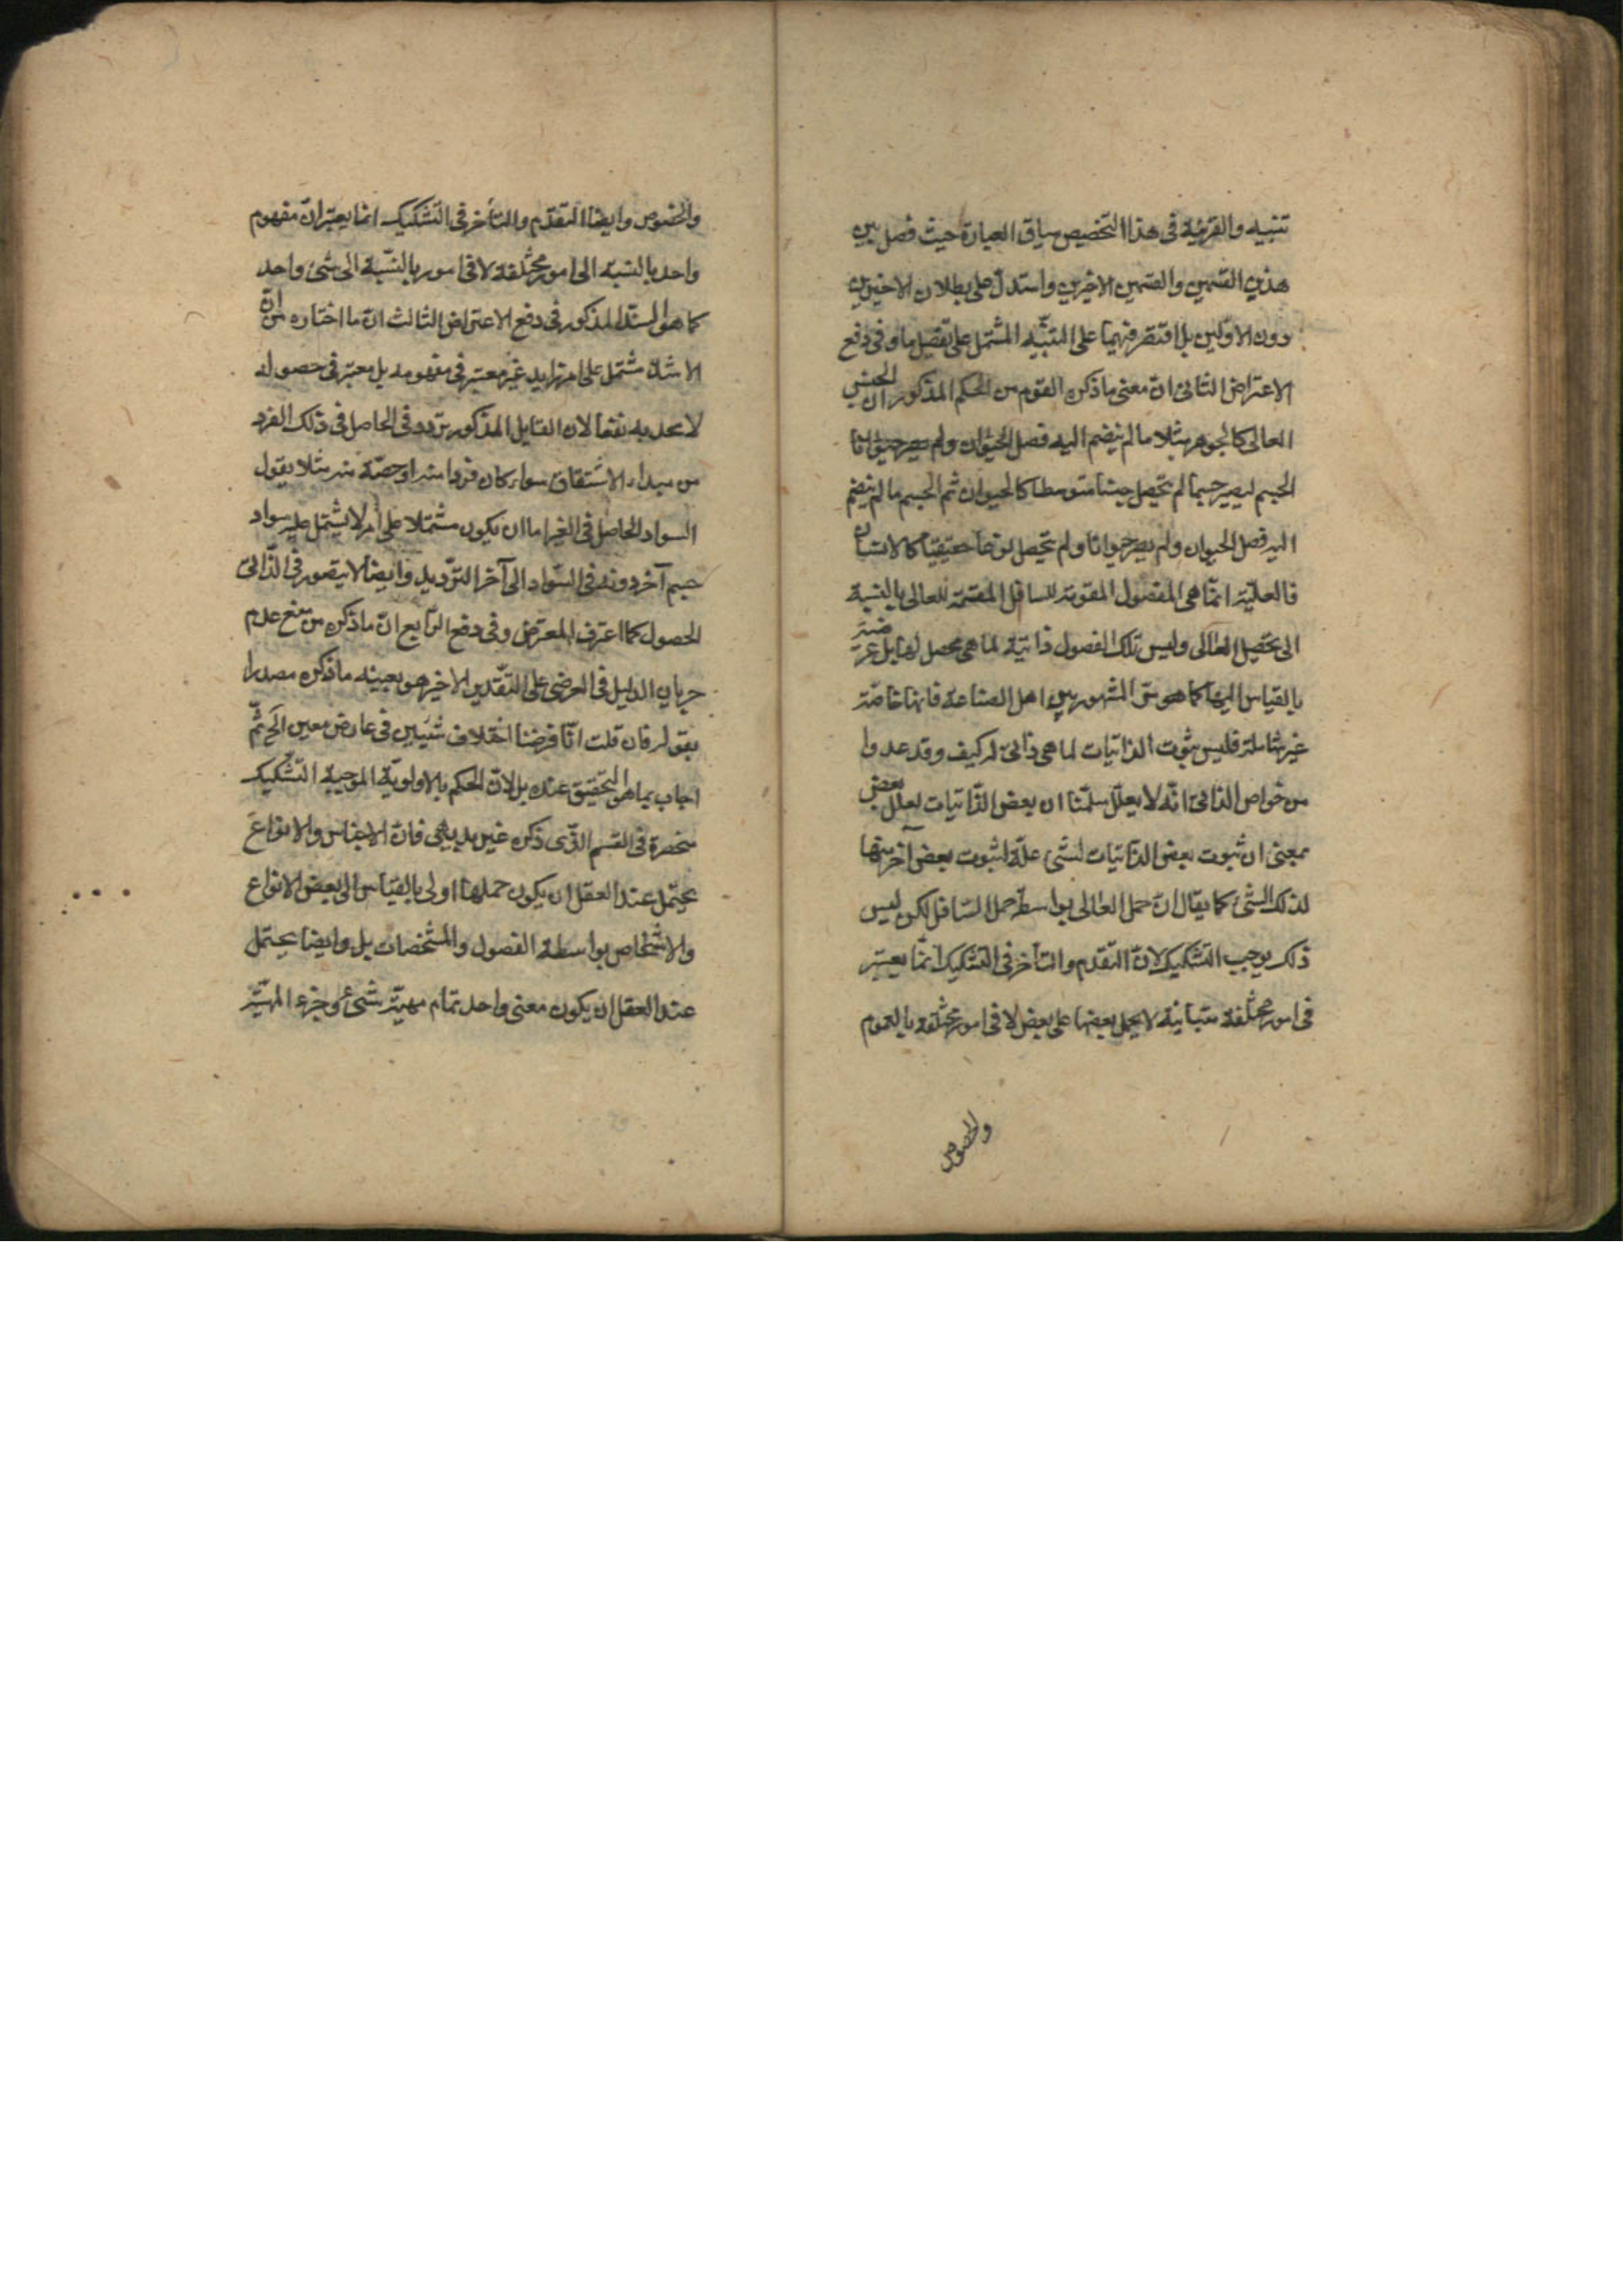 تنبيه والقرينة فى هذا التخصيص سياق العبارة حيث فصل بين
هذين القسمين والقسمين الاخيرين واستدل على بطلان الاخيرين
دون الاولين بل اقتصر فيهما على التنبيه المشتمل على تفصيل ما وفى دفع
الاعتراض الثانى ان معنى ما ذكره القوم من الحكم المذكور ان الجنس
العالى كالجوهر مثلا ما لم ينضم اليه فصل الحيوان ولم يصر حيوانا
الجسم ليصير جسما لم يتحصل جنسا متوسطا كالحيوان ثم الجسم ما لم ينضم
اليه فصل الحيوان ولم يصر حيوانا ولم يتحصل نوعا حقيقيا كالانسان
فالعلية انما هى للفصول المقومة للسافل المقسمة للعالى بالنسبة
الى تحصيل العالى وليس تلك الفصول ذاتية لما هى محصل لها بل عرضية
بالقياس اليها كما هو المشهور بين اهل الصناعة فانها خاصة
غير شاملة فليس ثبوت الذاتيات لما هى ذاتى له كيف وقد عدوا
من خواص الذاتى انه لا يعلل سلمنا ان بعض الذاتيات يعلل بعض
بمعنى ان ثبوت بعض الذاتيات لشئ علة لثبوت بعض آخر منها
لذلك الشئ كما يقال ان حمل العالى بواسطة حمل السافل لكن ليس
ذلك يوجب التشكيك لان التقدم والتأخر فى التشكيك انما يعتبر
فى امور مختلفة متباينة لا يحمل بعضها على بعض لا فى امور مختلفة بالعموم
والخصوص
والخصوص وايضا التقدم والتأخر فى التشكيك انما يعتبر ان مفهوم
واحد بالنسبة الى امور مختلفة لا فى امور بالنسبة الى شئ واحد
كما هو المستدل المذكور فى دفع الاعتراض الثالث ان ما اختاره من ان
الاشد مشتمل على امر زايد غير معتبر فى مفهومه بل معتبر فى حصوله
لا يجديه نفعا لان القايل المذكور يردد فى الحاصل فى ذلك الفرد
من مبدء الاشتقاق سواء كان فردا منه او حصة منه مثلا يقول
السواد الحاصل فى الغير اما ان يكون مشتملا على امر لا يشتمل عليه سواد
جسم آخر دونه فى السواد الى آخر الترديد وايضا لا يتصور فى الذاتى
الحصول كما اعترف المعترض وفى دفع الرابع ان ما ذكره من منع عدم
جريان الدليل فى العرضى على التقدير الاخير هو بعينه ما ذكره مصدرا
بقوله فان قلت انا فرضنا اختلاف شيئين فى عارض معين الخ ثم
اجاب بما هو التحقيق عنده بل لان الحكم بالاولوية الموجبة التشكيك
منحصرة فى القسم الذى ذكره غير بديهى فان الاجناس والانواع
يحتمل عند العقل ان يكون حملها اولى بالقياس الى بعض الانواع
والاشخاص بواسطة الفصول والمشخصات بل وايضا يحتمل
عند العقل ان يكون معنى واحد تمام مهية شئ وجزء المهية